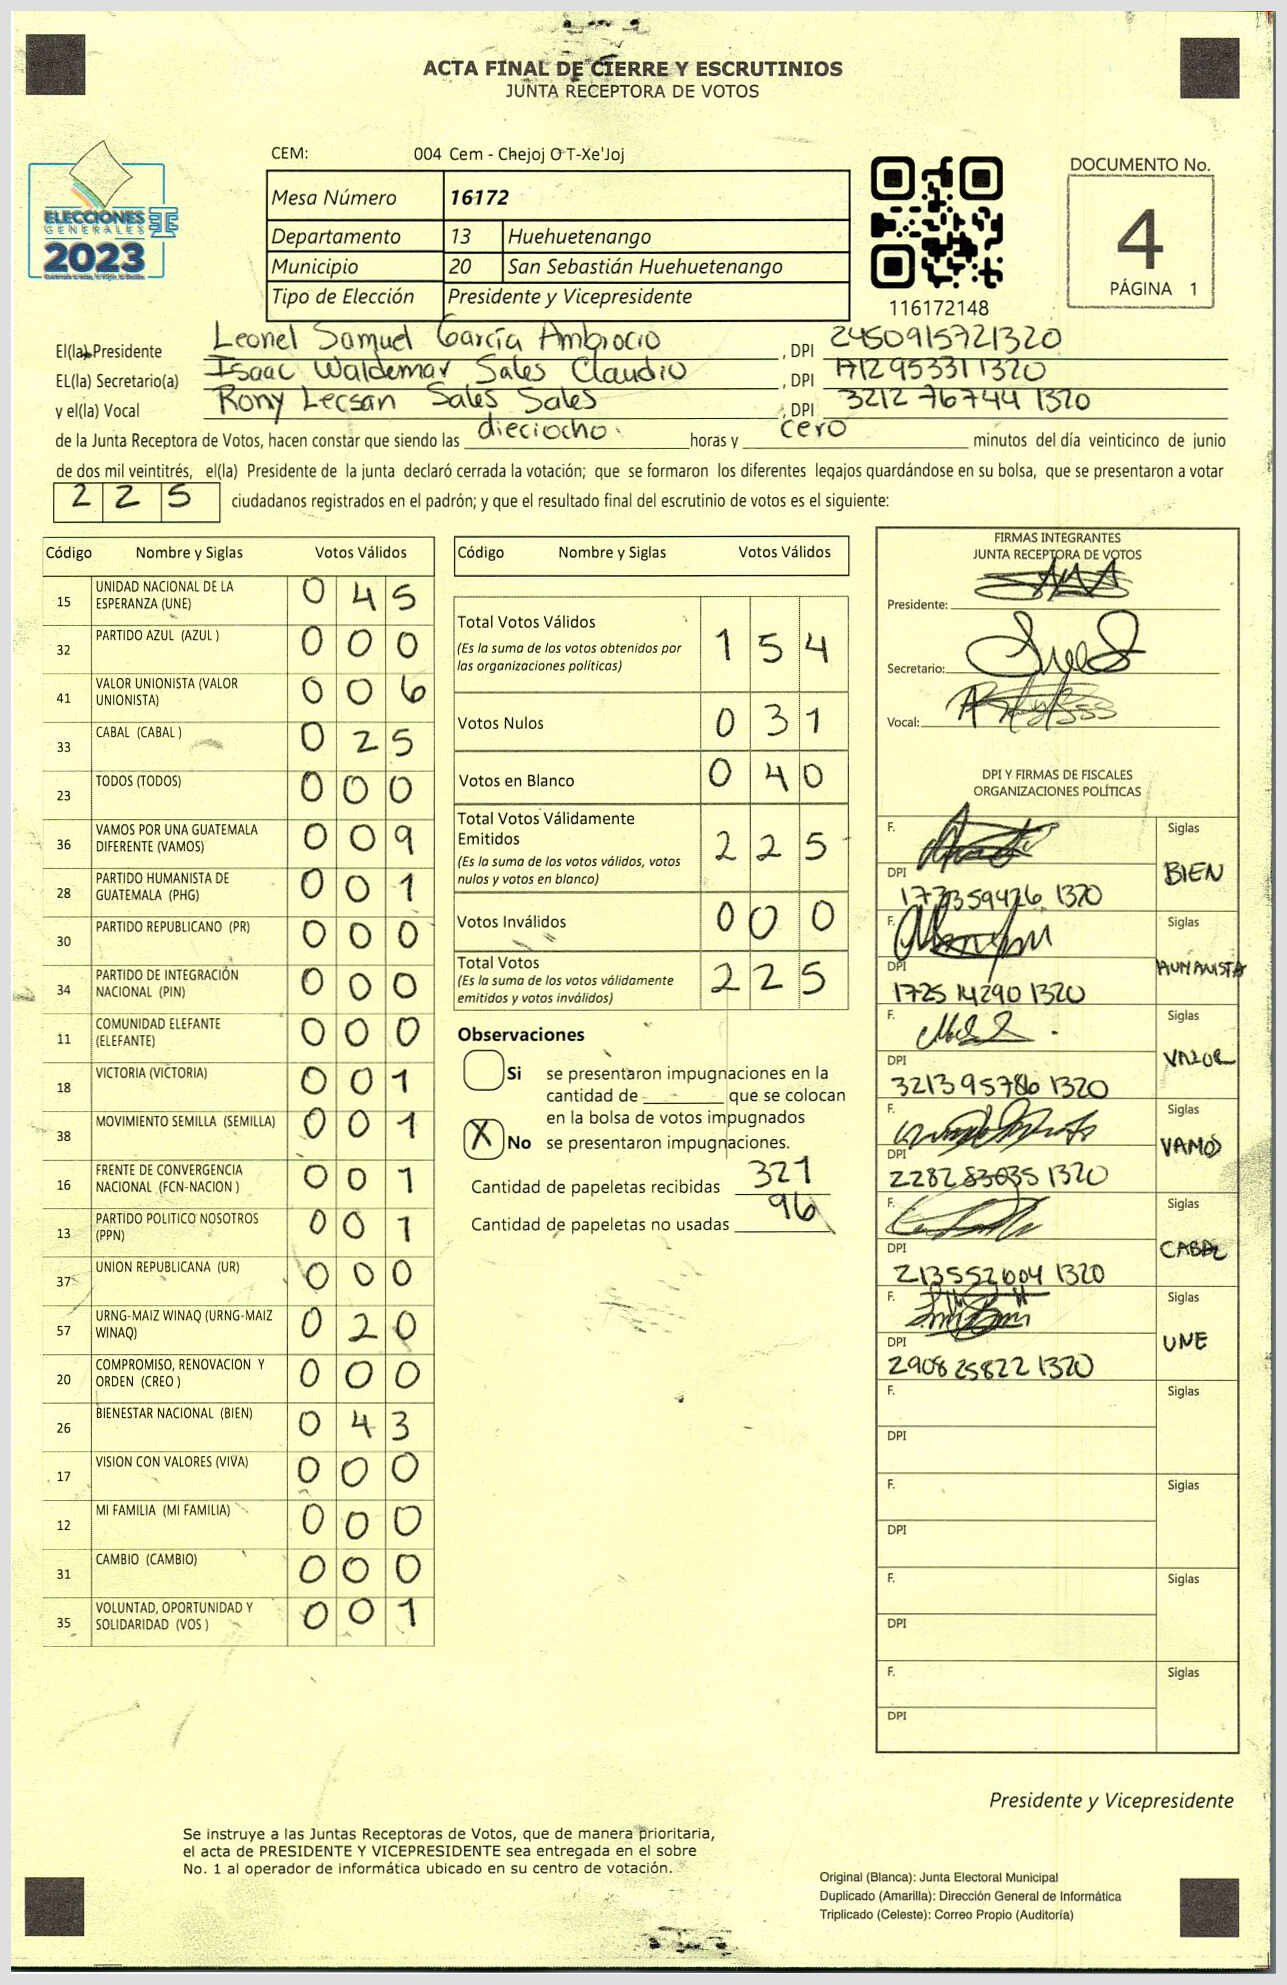 ACTA FINAL DE CIERRE Y ESCRUTINIOS
JUNTA RECEPTORA DE VOTOS
ELECCIONES
GENERALES
2023
CEM: 004 Cem - Chejoj O T-Xe'Joj
Mesa Número 16172
Departamento 13 Huehuetenango
Municipio 20 San Sebastián Huehuetenango
Tipo de Elección Presidente y Vicepresidente
116172148
DOCUMENTO No.
4
PÁGINA 1
El(la) Presidente Leonel Samuel García Ambrocio, DPI 2450915721320
EL(la) Secretario(a) Isaac Waldemar Sales Claudio, DPI 1712953311320
y el(la) Vocal Rony Lecsan Sales Sales, DPI 3212 76744 1320
de la Junta Receptora de Votos, hacen constar que siendo las dieciocho horas y cero minutos del día veinticinco de junio
de dos mil veintitrés, el(la) Presidente de la junta declaró cerrada la votación; que se formaron los diferentes legajos guardándose en su bolsa, que se presentaron a votar
225 ciudadanos registrados en el padrón; y que el resultado final del escrutinio de votos es el siguiente:
Código Nombre y Siglas Votos Válidos
15 UNIDAD NACIONAL DE LA ESPERANZA (UNE) 045
32 PARTIDO AZUL (AZUL ) 000
41 VALOR UNIONISTA (VALOR UNIONISTA) 006
33 CABAL (CABAL ) 025
23 TODOS (TODOS) 000
36 VAMOS POR UNA GUATEMALA DIFERENTE (VAMOS) 009
28 PARTIDO HUMANISTA DE GUATEMALA (PHG) 001
30 PARTIDO REPUBLICANO (PR) 000
34 PARTIDO DE INTEGRACIÓN NACIONAL (PIN) 000
11 COMUNIDAD ELEFANTE (ELEFANTE) 000
18 VICTORIA (VICTORIA) 001
38 MOVIMIENTO SEMILLA (SEMILLA) 001
16 FRENTE DE CONVERGENCIA NACIONAL (FCN-NACION ) 001
13 PARTIDO POLITICO NOSOTROS (PPN) 001
37 UNION REPUBLICANA (UR) 000
57 URNG-MAIZ WINAQ (URNG-MAIZ WINAQ) 020
20 COMPROMISO, RENOVACION Y ORDEN (CREO ) 000
26 BIENESTAR NACIONAL (BIEN) 043
17 VISION CON VALORES (VIVA) 000
12 MI FAMILIA (MI FAMILIA) 000
31 CAMBIO (CAMBIO) 000
35 VOLUNTAD, OPORTUNIDAD Y SOLIDARIDAD (VOS ) 001
Código Nombre y Siglas Votos Válidos
Total Votos Válidos 154
(Es la suma de los votos obtenidos por
las organizaciones políticas)
Votos Nulos 031
Votos en Blanco 040
Total Votos Válidamente
Emitidos 225
(Es la suma de los votos válidos, votos
nulos y votos en blanco)
Votos Inválidos 000
Total Votos 225
(Es la suma de los votos válidamente
emitidos y votos inválidos)
Observaciones
Si se presentaron impugnaciones en la
cantidad de ________ que se colocan
en la bolsa de votos impugnados
X No se presentaron impugnaciones.
Cantidad de papeletas recibidas 321
Cantidad de papeletas no usadas 96
FIRMAS INTEGRANTES
JUNTA RECEPTORA DE VOTOS
Presidente:
Secretario:
Vocal:
DPI Y FIRMAS DE FISCALES
ORGANIZACIONES POLÍTICAS
F. Siglas BIEN
DPI
F. Siglas HUMANISTA
DPI 1725 14290 1320
F. Siglas VALOR
DPI 3213 95786 1320
F. Siglas VAMOS
DPI 2282 83035 1320
F. Siglas CABAL
DPI 2135521004 1320
F. Siglas UNE
DPI 2908 25822 1320
F. Siglas
DPI
F. Siglas
DPI
F. Siglas
DPI
F. Siglas
DPI
Presidente y Vicepresidente
Se instruye a las Juntas Receptoras de Votos, que de manera prioritaria,
el acta de PRESIDENTE Y VICEPRESIDENTE sea entregada en el sobre
No. 1 al operador de informática ubicado en su centro de votación.
Original (Blanca): Junta Electoral Municipal
Duplicado (Amarilla): Dirección General de Informática
Triplicado (Celeste): Correo Propio (Auditoría)